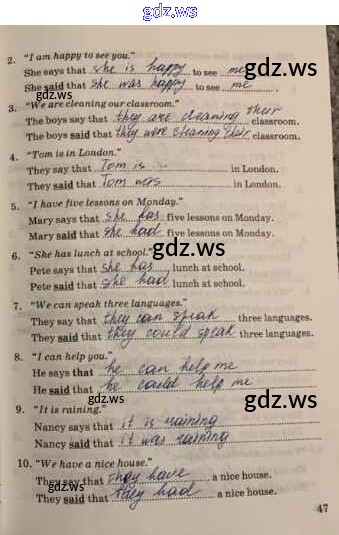 gdz.ws
2. "I am happy to see you."
She says that she is happy to see me
She said that she was happy to see me
gdz.ws
3. "We are cleaning our classroom."
The boys say that they are cleaning their classroom.
The boys said that they were cleaning their classroom.
4. "Tom is in London."
They say that Tom is ... in London.
They said that Tom was in London.
5. "I have five lessons on Monday."
Mary says that she has five lessons on Monday.
Mary said that she had five lessons on Monday.
gdz.ws
6. "She has lunch at school."
Pete says that she has lunch at school.
Pete said that she had lunch at school.
7. "We can speak three languages."
They say that they can speak three languages.
They said that they could speak three languages.
8. "I can help you."
He says that he can help me
He said that he could help me
gdz.ws
9. "It is raining."
Nancy says that it is raining
Nancy said that it was raining
10. "We have a nice house."
They say that they have a nice house.
They said that they had a nice house.
47
gdz.ws
gdz.ws